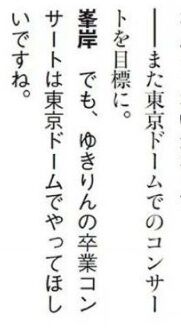 ――また東京ドームでのコンサー
トを目標に。
峯岸　でも、ゆきりんの卒業コン
サートは東京ドームでやってほし
いですね。